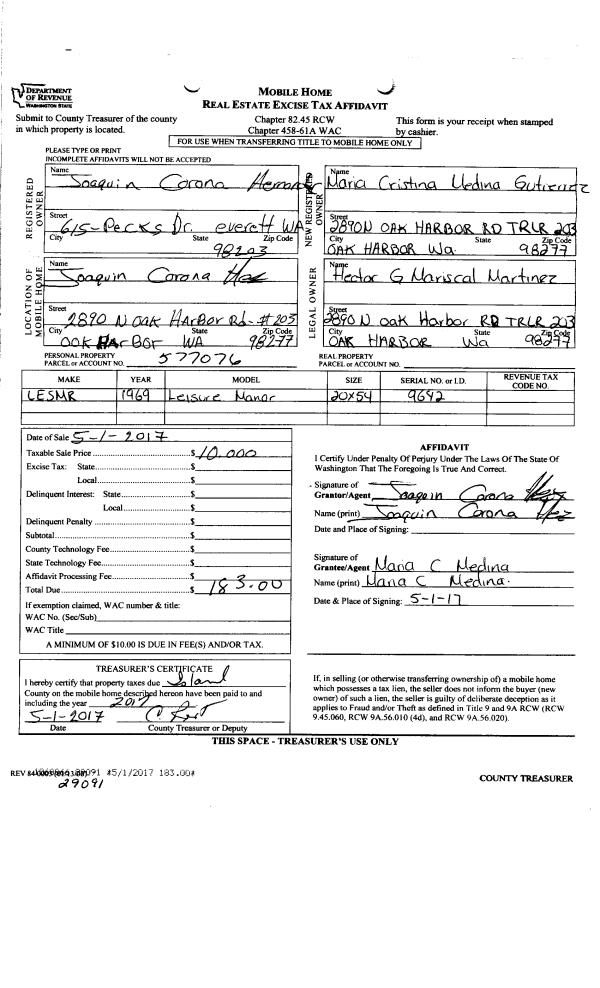 DEPARTMENT
OF REVENUE
WASHINGTON STATE
MOBILE HOME
REAL ESTATE EXCISE TAX AFFIDAVIT
Submit to County Treasurer of the county
in which property is located.
Chapter 82.45 RCW
Chapter 458-61A WAC
This form is your receipt when stamped
by cashier.
FOR USE WHEN TRANSFERRING TITLE TO MOBILE HOME ONLY
PLEASE TYPE OR PRINT
INCOMPLETE AFFIDAVITS WILL NOT BE ACCEPTED
REGISTERED
OWNER
Name
Joaquin Corona Hernandez
Street
615-Pecks Dr. everett WA
City State Zip Code
98203
NEW REGISTERED
OWNER
Name
Maria Cristina Medina Gutierrez
Street
2890N OAK HARBOR RD TRLR 203
City State Zip Code
OAK HARBOR Wa. 98277
LOCATION OF
MOBILE HOME
Name
Joaquin Corona Hez
Street
2890 N Oak HARBOR Rd-#203
City State Zip Code
OAK HARBOR WA 98277
LEGAL OWNER
Name
Hector G Mariscal Martinez
Street
2890 N oak Harbor RD TRLR 203
City State Zip Code
OAK HARBOR Wa 98277
PERSONAL PROPERTY
PARCEL or ACCOUNT NO. 577076
REAL PROPERTY
PARCEL or ACCOUNT NO.
MAKE YEAR MODEL SIZE SERIAL NO. or I.D. REVENUE TAX CODE NO.
LESMR 1969 Leisure Manor 20X54 9642
Date of Sale 5-1-2017
Taxable Sale Price $ 10.000
Excise Tax: State $
Local $
Delinquent Interest: State $
Local $
Delinquent Penalty $
Subtotal $
County Technology Fee $
State Technology Fee $
Affidavit Processing Fee $
Total Due $ 183.00
If exemption claimed, WAC number & title:
WAC No. (Sec/Sub)
WAC Title
A MINIMUM OF $10.00 IS DUE IN FEE(S) AND/OR TAX.
AFFIDAVIT
I Certify Under Penalty Of Perjury Under The Laws Of The State Of
Washington That The Foregoing Is True And Correct.
Signature of
Grantor/Agent Joaquin Corona Hez
Name (print) Joaquin Corona Hez
Date and Place of Signing:
Signature of
Grantee/Agent Maria C Medina
Name (print) Maria C Medina.
Date & Place of Signing: 5-1-17
TREASURER'S CERTIFICATE
I hereby certify that property taxes due Island
County on the mobile home described hereon have been paid to and
including the year 2017
5-1-2017
Date County Treasurer or Deputy
If, in selling (or otherwise transferring ownership of) a mobile home
which possesses a tax lien, the seller does not inform the buyer (new
owner) of such a lien, the seller is guilty of deliberate deception as it
applies to Fraud and/or Theft as defined in Title 9 and 9A RCW (RCW
9.45.060, RCW 9A.56.010 (4d), and RCW 9A.56.020).
THIS SPACE - TREASURER'S USE ONLY
REV 84 29091 #5/1/2017 183.00#
29091
COUNTY TREASURER